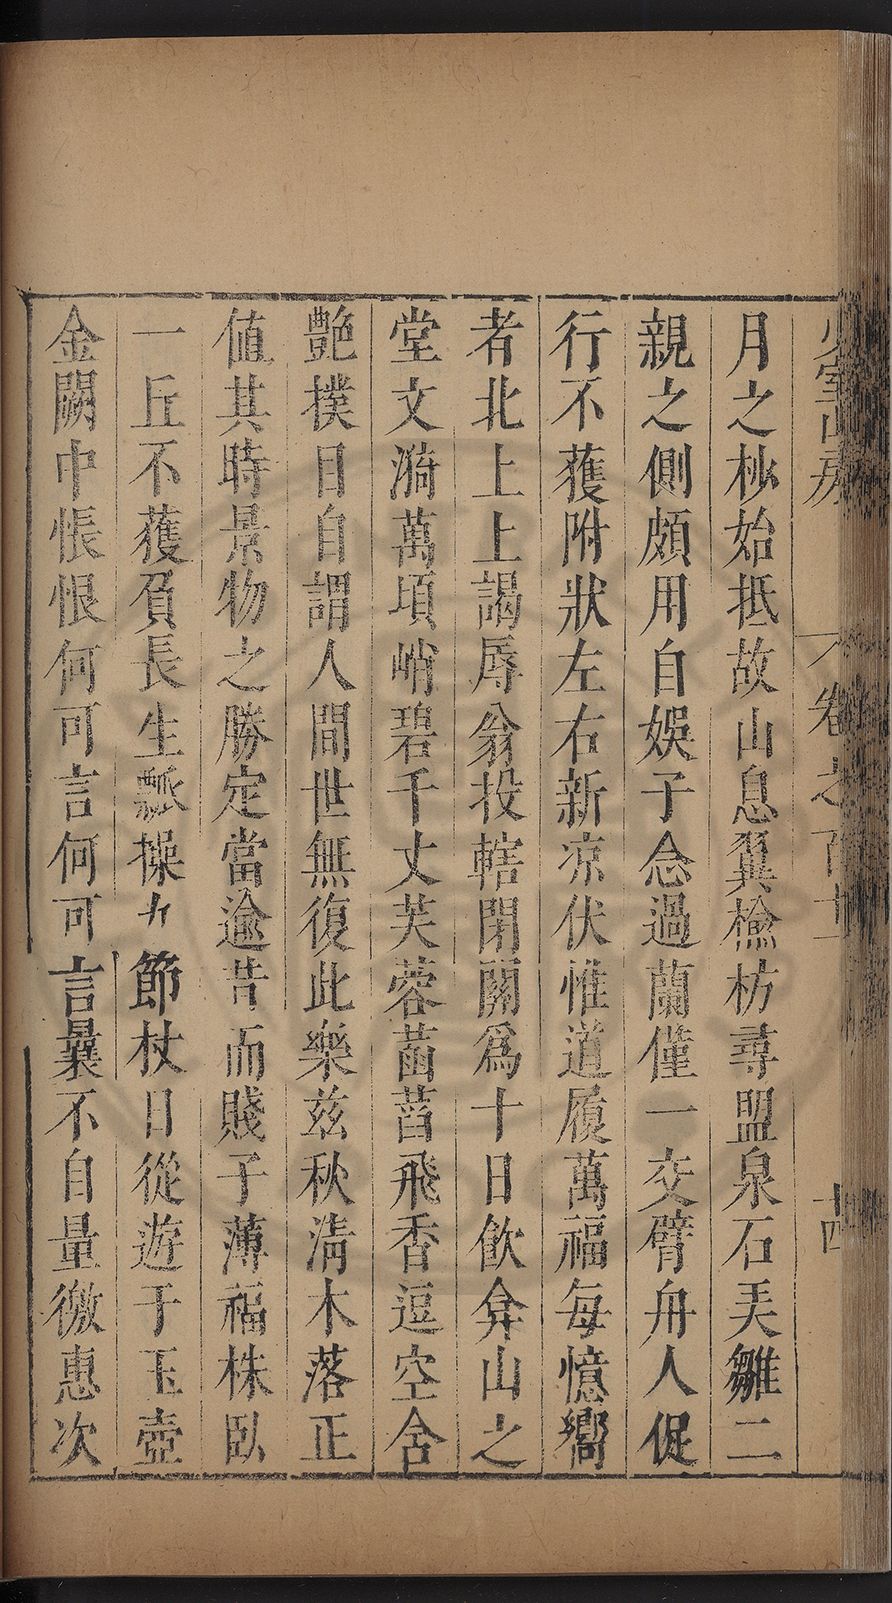 少室山房 卷之百十一 十四
月之杪始抵故山息翼楡枋尋盟泉石弄雛二
親之側頗用自娛子念過蘭僅一交臂舟人促
行不獲附狀左右新凉伏惟道履萬福每憶嚮
者北上上謁辱翁投轄閉關爲十日飲弇山之
堂文漪萬頃峭碧千丈芙蓉菡萏飛香逗空含
艶撲目自謂人間世無復此樂茲秋淸木落正
値其時景物之勝定當逾昔而賤子薄福株臥
一丘不獲負長生瓢操九節杖日從遊于玉壺
金闕中悵恨何可言何可言曩不自量徼惠次